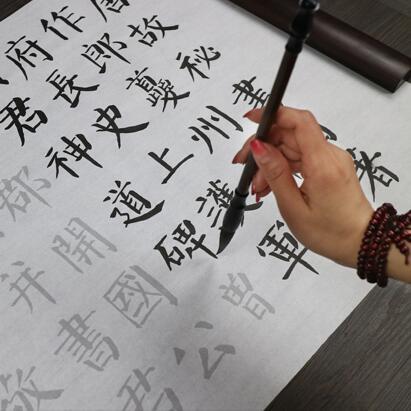 唐故秘書著
作郎夔州
府長史上護軍
君神道碑曾
郡開國公
并書君
敬